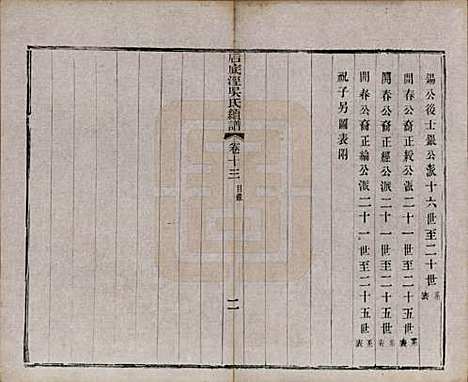 湯公後士銀公派十六世至二十世系表
開春公裔正毅公派二十一世至二十五世系表
開春公裔正經公派二十一世至二十五世系表
開春公裔正綸公派二十一世至二十五世系表
祝子另圖表附
后底涇吳氏續譜
卷十三
目錄
二